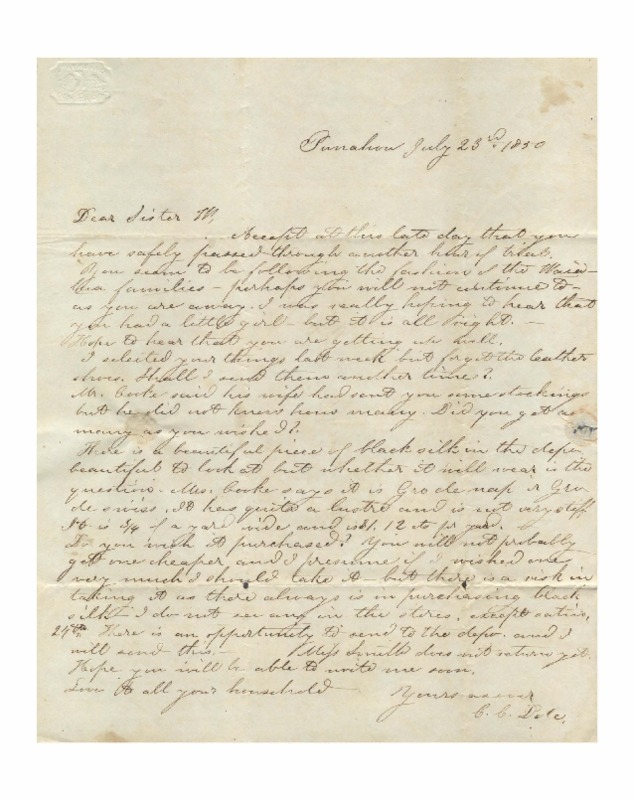 Punahou July 23rd. 1850
Dear Sister M,
Accept at this late day that you
have safely passed through another hour of trial.
You seem to be following the fashion of the Waia-
lua families - perhaps you will not continue to -
as you are away. I was really hoping to hear that
you had a little girl - but it is all right. -
Hope to hear that you are getting up well.
I selected your things last week but forgot the leather
shoes. Shall I send them another time?
Mr. Cooke said his wife had sent you some stockings
but he did not know how many. Did you get as
many as you wished?
Here is a beautiful piece of black silk in the depo.
beautiful to look at but whether it will wear is the
question. Mrs. Cooke says it is Gro de nap or Gro
de swiss. It has quite a lustre and is not very stiff
It is 3/4 of a yard wide and is $1.12 cts pr yard.
Do you wish it purchased? You will not probably
get one cheaper and I presume if I wished one
very much I should take it - but there is a risk in
taking it as there always is in purchasing black
silk - I do not see any in the stores, except satins,
24th Here is an opportunity to send to the depo. and I
will send this. - Miss Smith does not return yet.
Hope you will be able to write me soon.
Love to all your household -
Yours as ever
C. C. Dole.